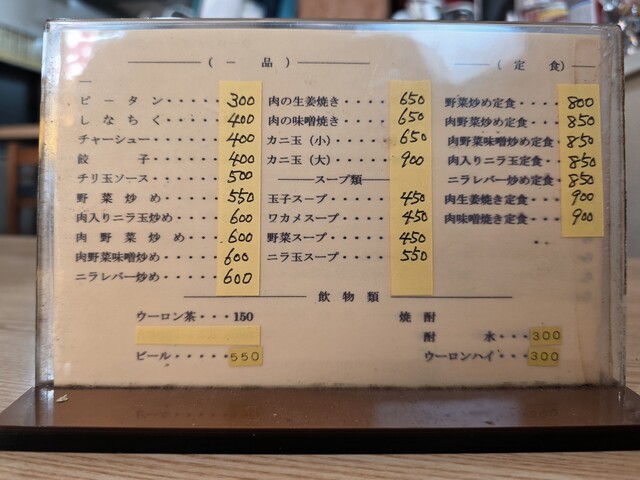 （ 一 品 ）
ピータン・・・・・300
しなちく・・・・・400
チャーシュー・・・・400
餃子・・・・・400
チリ玉ソース・・・・500
野菜炒め・・・・・550
肉入りニラ玉炒め・・・600
肉野菜炒め・・・600
肉野菜味噌炒め・・・600
ニラレバー炒め・・・・600
肉の生姜焼き・・・・650
肉の味噌焼き・・・・650
カニ玉（小）・・・・650
カニ玉（大）・・・・900
スープ類
玉子スープ・・・・・450
ワカメスープ・・・・450
野菜スープ・・・・・450
ニラ玉スープ・・・・550
（ 定 食）
野菜炒め定食・・・・800
肉野菜炒め定食・・・850
肉野菜味噌炒め定食・850
肉入りニラ玉定食・・850
ニラレバー炒め定食・850
肉生姜焼き定食・・・900
肉味噌焼き定食・・・900
飲 物 類
ウーロン茶・・・150
ビール・・・・・550
焼 酎
酎 水・・・300
ウーロンハイ・・・300